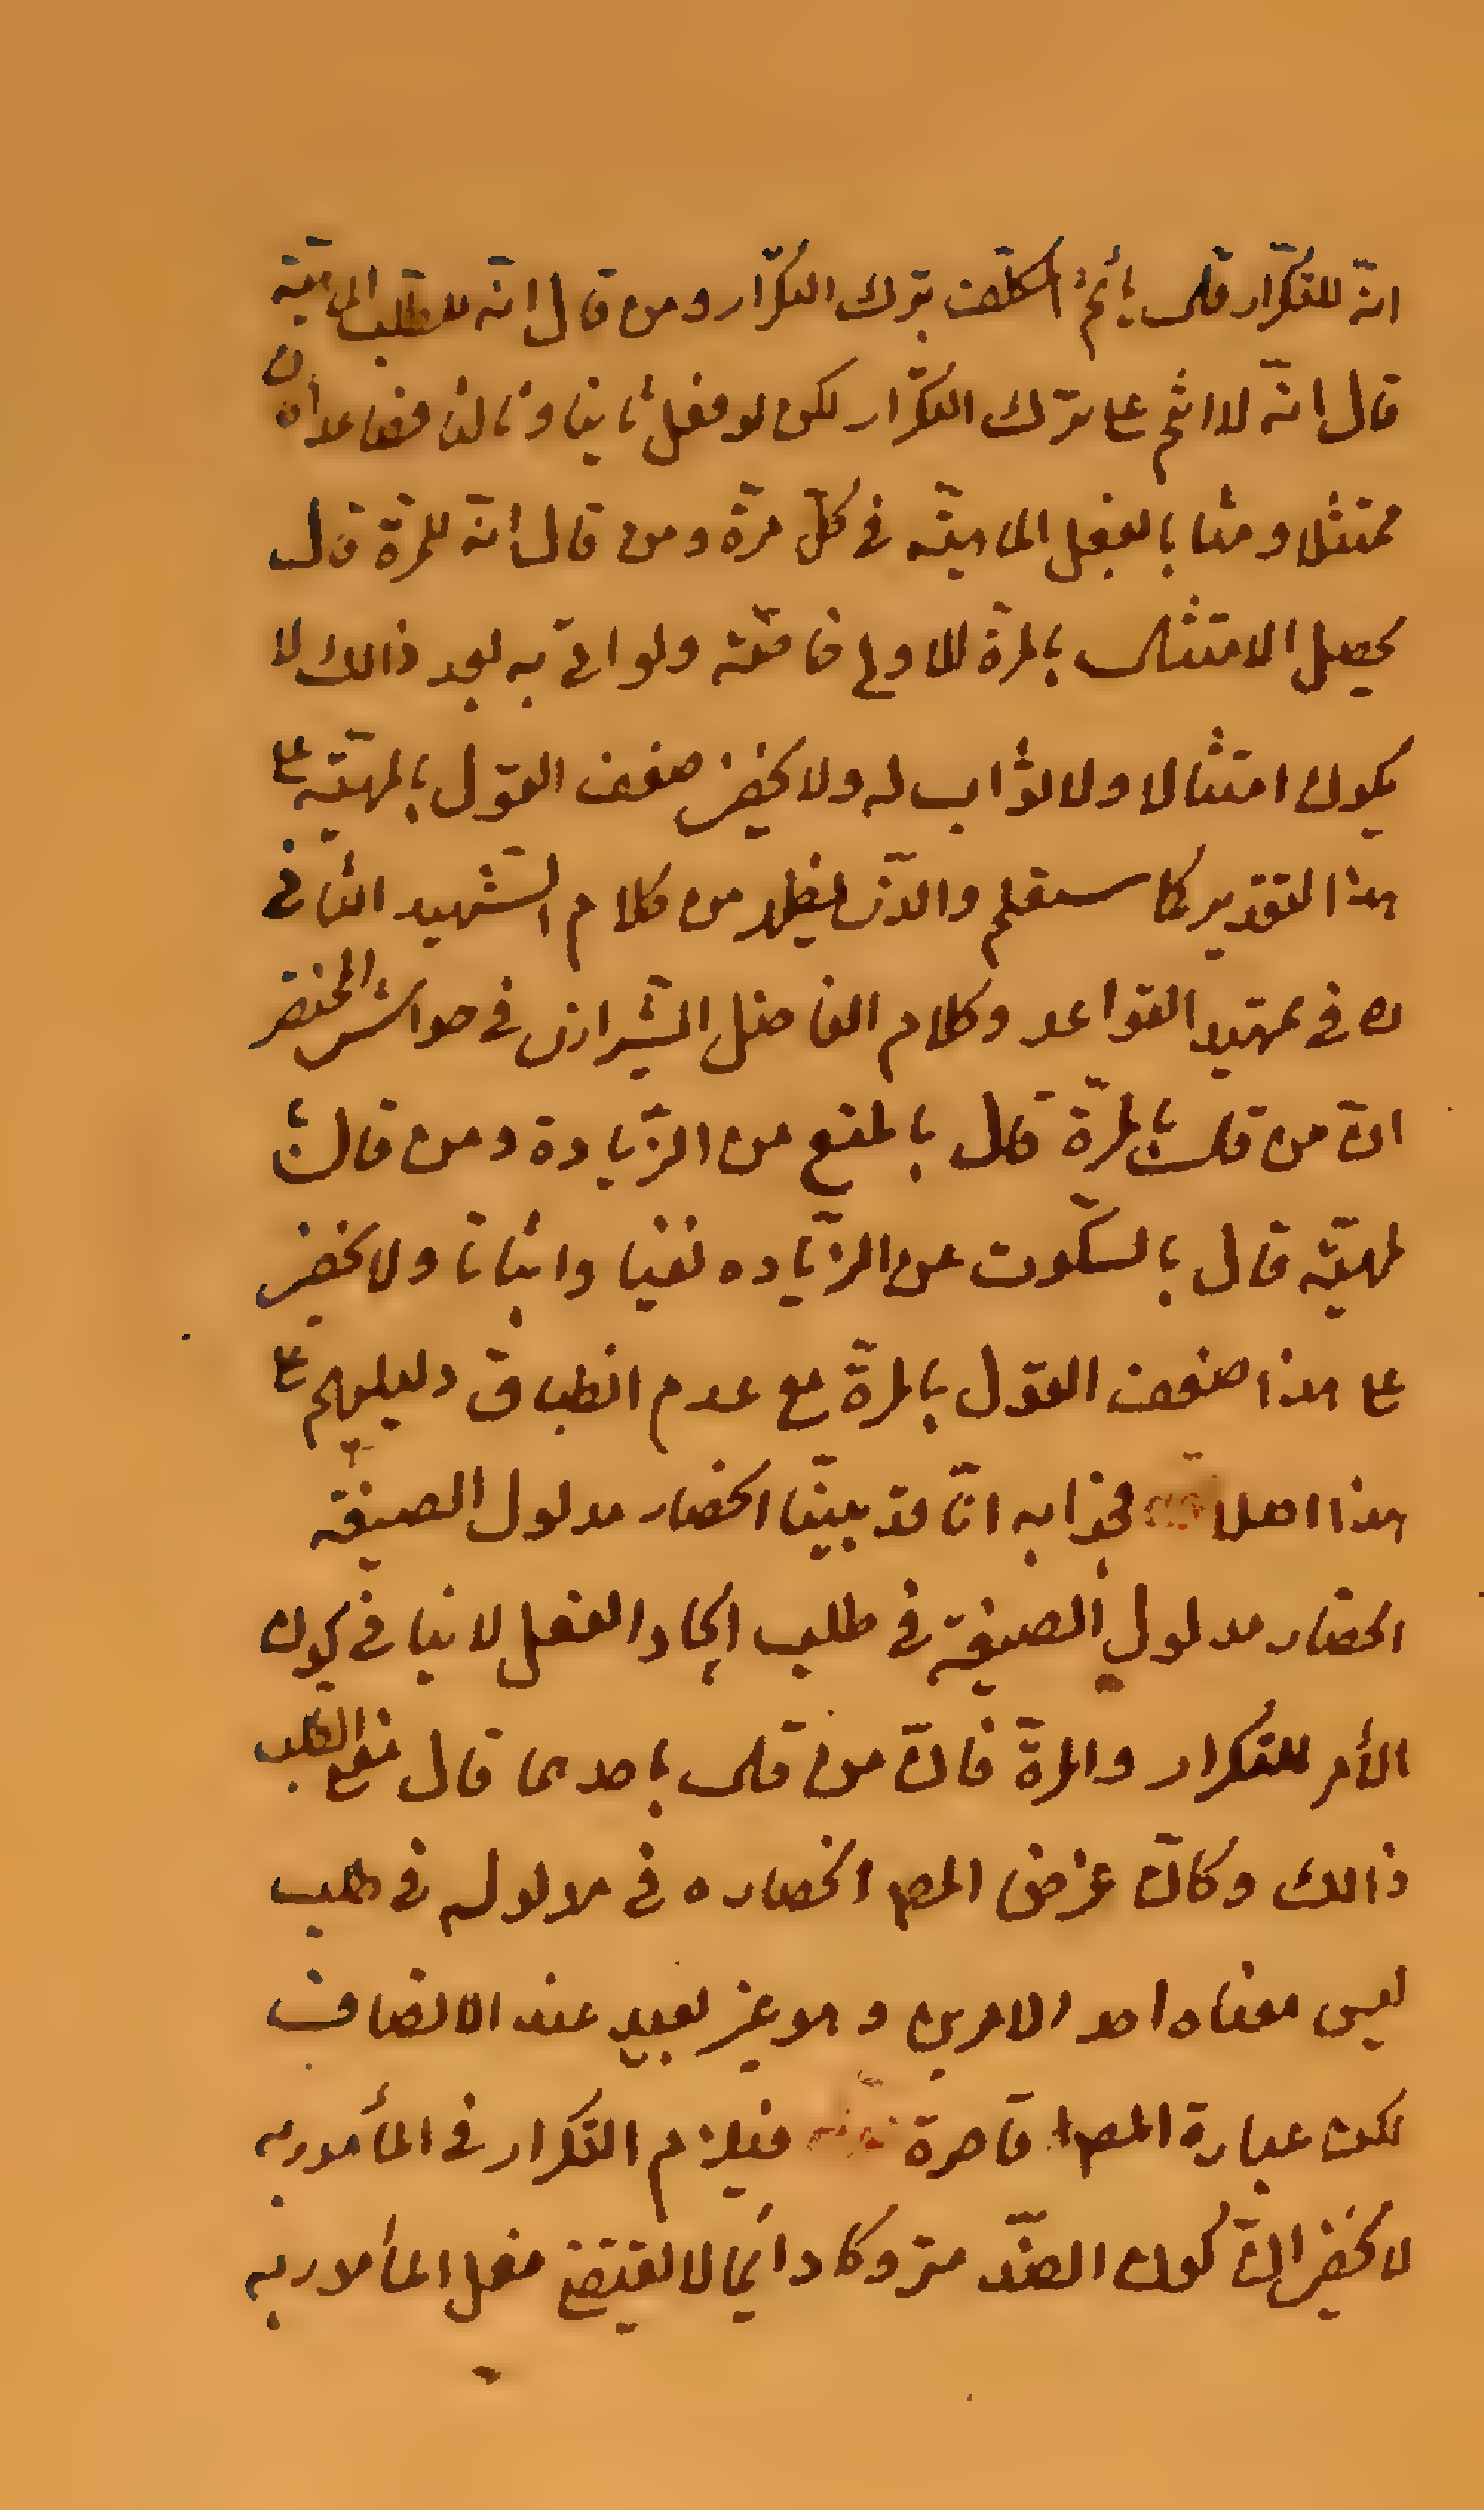 انّه للتكرار قال يأثم المكلّف بترك التكرّار ومن قال انّه لطلب الماهيّة
قال انّه لا اثم على ترك التكرّار لكن لو فعل ثانيا وثالثا فصاعدا كان
ممتثلا ومثابا بالفعل الماهيّه في كلّ مرّة ومن قال انّه للمرّة قال
يحصل الامتثال بالمرّة الاولى خاصّة ولو اتى به بعد ذالك لا
يكون امتثالا ولا ثواب له ولا يخفى ضعف القول بالمهيّه على
هذا التقدير كما ستعلم والذّى يظهر من كلام الشّهيد الثانى
ره فى تمهيد القواعد وكلام الفاضل الشّيرازى فى حواشى المختصر
انّ من قال بالمرّة قال بالمنع من الزّيادة ومن قال با
لمهيّه قال بالسّكوت عن الزّياده نفيا واثباتا ولا يخفى
على هذا ضعف القول بالمرّة مع عدم انطباق دليلهم على
هذا اصلا قوله فجوابه انّا قد بيّنّا انحصار مدلول الصيغة
انحصار مدلول الصيغة فى طلب ايجاد الفعل لا ينافى كون
الأمر للتكرار والمرّة فانّ من قال باحدهما قال مع الطّلب
ذالك وكانّ غرض المصـ انحصاره فى مدلوله فى طلب
ليس معناه احد الامرين وهو غير بعيد عند الانصاف
لكن عبارة المصـ قاصرة قوله فيلزم التكرار فى المأموربه
لا يخفى انّ كون الضّد متروكا دائما لا يقتضى فعل المأمور به